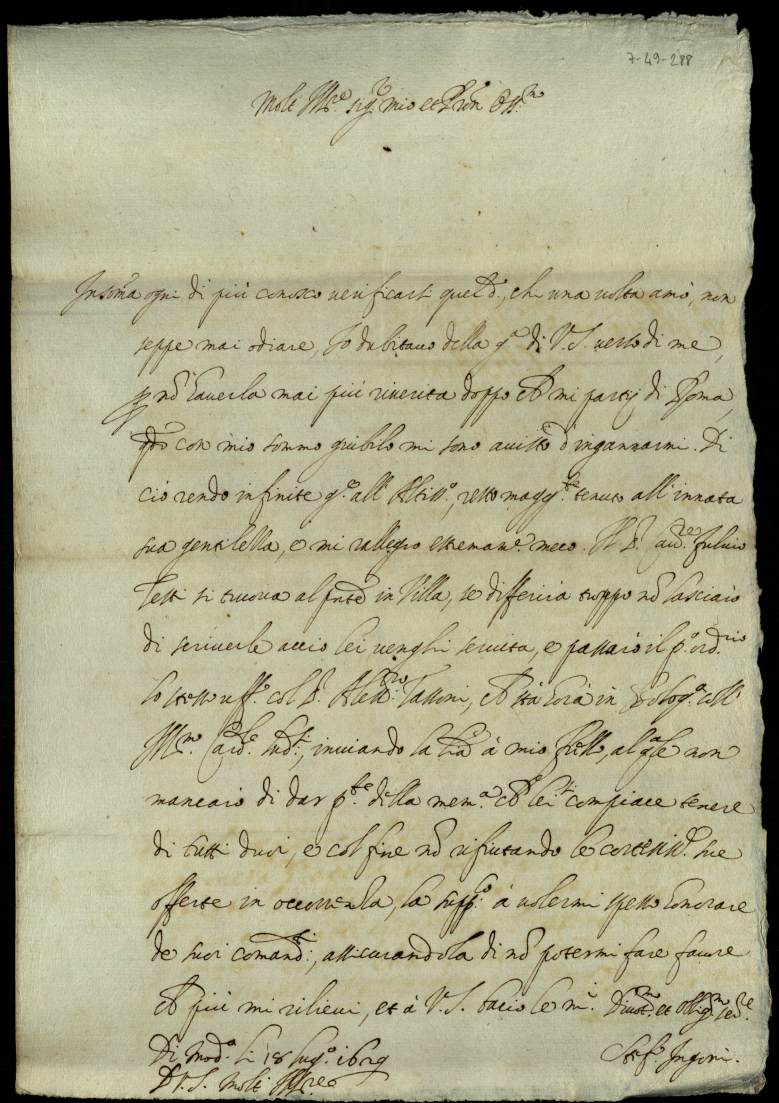 7-49-288
Molt' Ill.re sig.r mio et P'ron Oss.mo
In som'a ogni dì più conosco verificarsi quel d.o, chi una volta amò, non
seppe mai odiare, Io dubitavo della g.a di V.S. verso di me,
p nõ haverla mai più riverita doppo ch' mi partij di Roma,
con mio sommo giubilo mi sono avisto d'ingannarmi. Di
ciò rendo infinite g.e all' Altiss.o, resto magg.te tenuto all' innata
sua gentilezza, e mi rallegro estremam.e meco. Il S. Cav.re Fulvio
Testi si truova al p'nte in Villa, se differirà troppo nõ lasciarò
di scriverle acciò lei venghi servita, e passarò il p.o ord.rio
lo stesso uff.o col S. Aless.ro Tassoni, ch' stà hora in Bolog.a coll'
Ill.mo Card.le Lud.i, inviando la l'ra à mio fr'ello, al q'ale non
mancarò di dar p.te della mem.a ch' lei si compiace tenere
di tutti duoi, e col fine nõ rifiutando le cortesiss.e sue
offerte in occorrenza, la supp.co à volermi spesso honorare
de suoi comand.i, assicurandola di nõ potermi fare favore
ch' più mi rilievi, et à V.S. bacio le m.i Divot.mo et oblig.mo ser.re
Di Mod.a li 18 lug.o 1629 Stef.o Ingoni.
D V.S. Molt' Ill.re